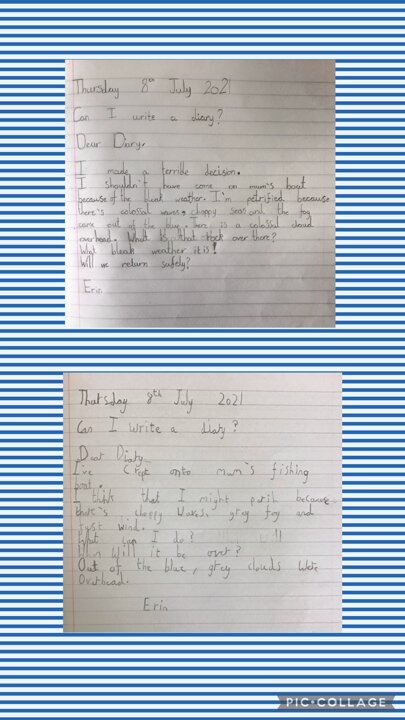 Thursday 8th July 2021
Can I write a diary?
Dear Diary,
I made a terrible decision.
I shouldn't have come on mum's boat
because of the bleak weather. I'm petrified because
there's colossal waves, choppy seas and the fog
came out of the blue. There is a colossal cloud
overhead. What is that rock over there?
What bleak weather it is!
Will we return safely?
Erin
Thursday 8th July 2021
Can I write a diary?
Dear Diary
I've crept onto mum's fishing
boat.
I think that I might perish because
there's choppy waves, grey fog and
fast wind.
What can I do?
When will it be over?
Out of the blue, grey clouds were
Overhead.
Erin
PIC•COLLAGE